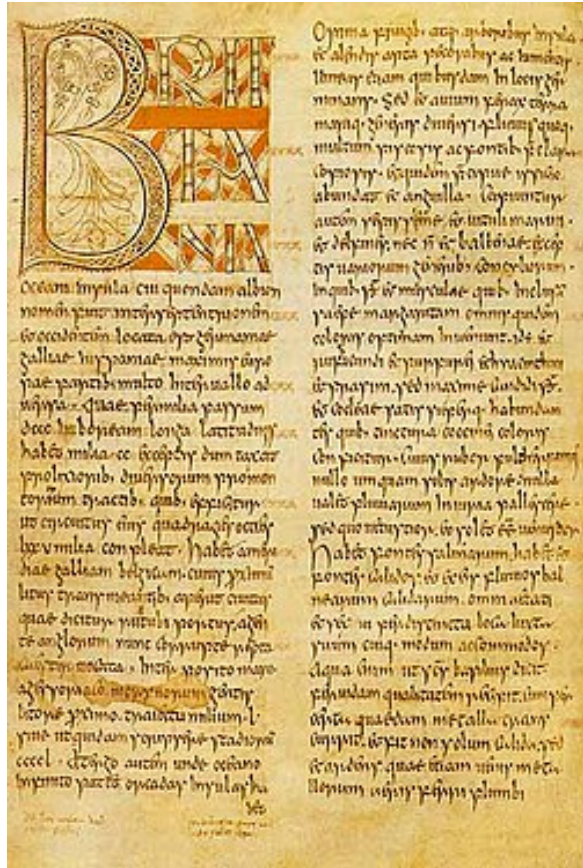 BRIT
TA
NIA
Oceani insula cui quondam albion
nomen fuit inter septentrionem
et occidentem locata est germaniae
galliae hispaniae maximis euro
pae partib. multo interuallo ad
uersa. Quae per milia passuum
dccc in boream longa latitudinis
habet milia cc exceptis dum taxat
prolixiorib. diuersorum promon
toriorum tractib. quib. efficitur
ut circuitus eius quadragies octies
lxxu milia conpleat. habet a meri
diae galliam belgicam. cuius proximum
litus transmeantib. aperit ciuitas
quae dicitur rutubi portus. a gen
te anglorum nunc corrupte
uocata. Interposito mari
a morynorum gentis
litore proximo. traiectu milium .l.
siue ut quidam scripsere stadiorum
ccccl. A tergo autem unde oceano
infinito patet orcadas insulas ha
bet
Opima frugib. atq. arborib. insula
et alendis apta pecorib. ac iumentis.
uineas etiam quibusdam in locis ger
minans. Sed et auium ferax terra
mariq. generis diuersi. fluuiis quoq.
multum piscosis ac fontib.
copiosis. et quidem precipue issicio
abundat et anguilla. Capiuntur
autem saepissime et uituli marini
et delfines nec non et balenae. excep
tis uariorum generib. concyliorum.
in quib. sunt et musculae quib. inclusam
saepe margaritam omnis quidem
coloris optimam inueniunt. id est et
rubicundi et purpurei et
et prasini. sed maxime candidi. sunt
et cocleae satis superq. habundan
tes quib. tinctura coccinei coloris
conficitur. cuius rubor
nullo umquam solis ardore nulla
ualet pluuiarum iniuria pallescere
sed quo uetustior eo solet esse uenustior
Habet fontes salinarum. habet et
fontes calidos. et ex eis fluuios bal
nearum calidarum. omni aetati
et sexui per distincta loca iuxta
suum cuiq. modum accommodos.
Aqua enim ut scs basilius dicit
feruidam qualitatem recipit. cum per
certa quaedam metalla
et fit non solum calida. sed
et ardens. quae etiam uenis metal
lorum aeris ferri plumbi